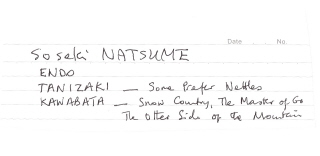 Date No.
Soseki NATSUME
ENDO
TANIZAKI — Some Prefer Nettles
KAWABATA — Snow Country, The Master of Go
The Other Side of the Mountain